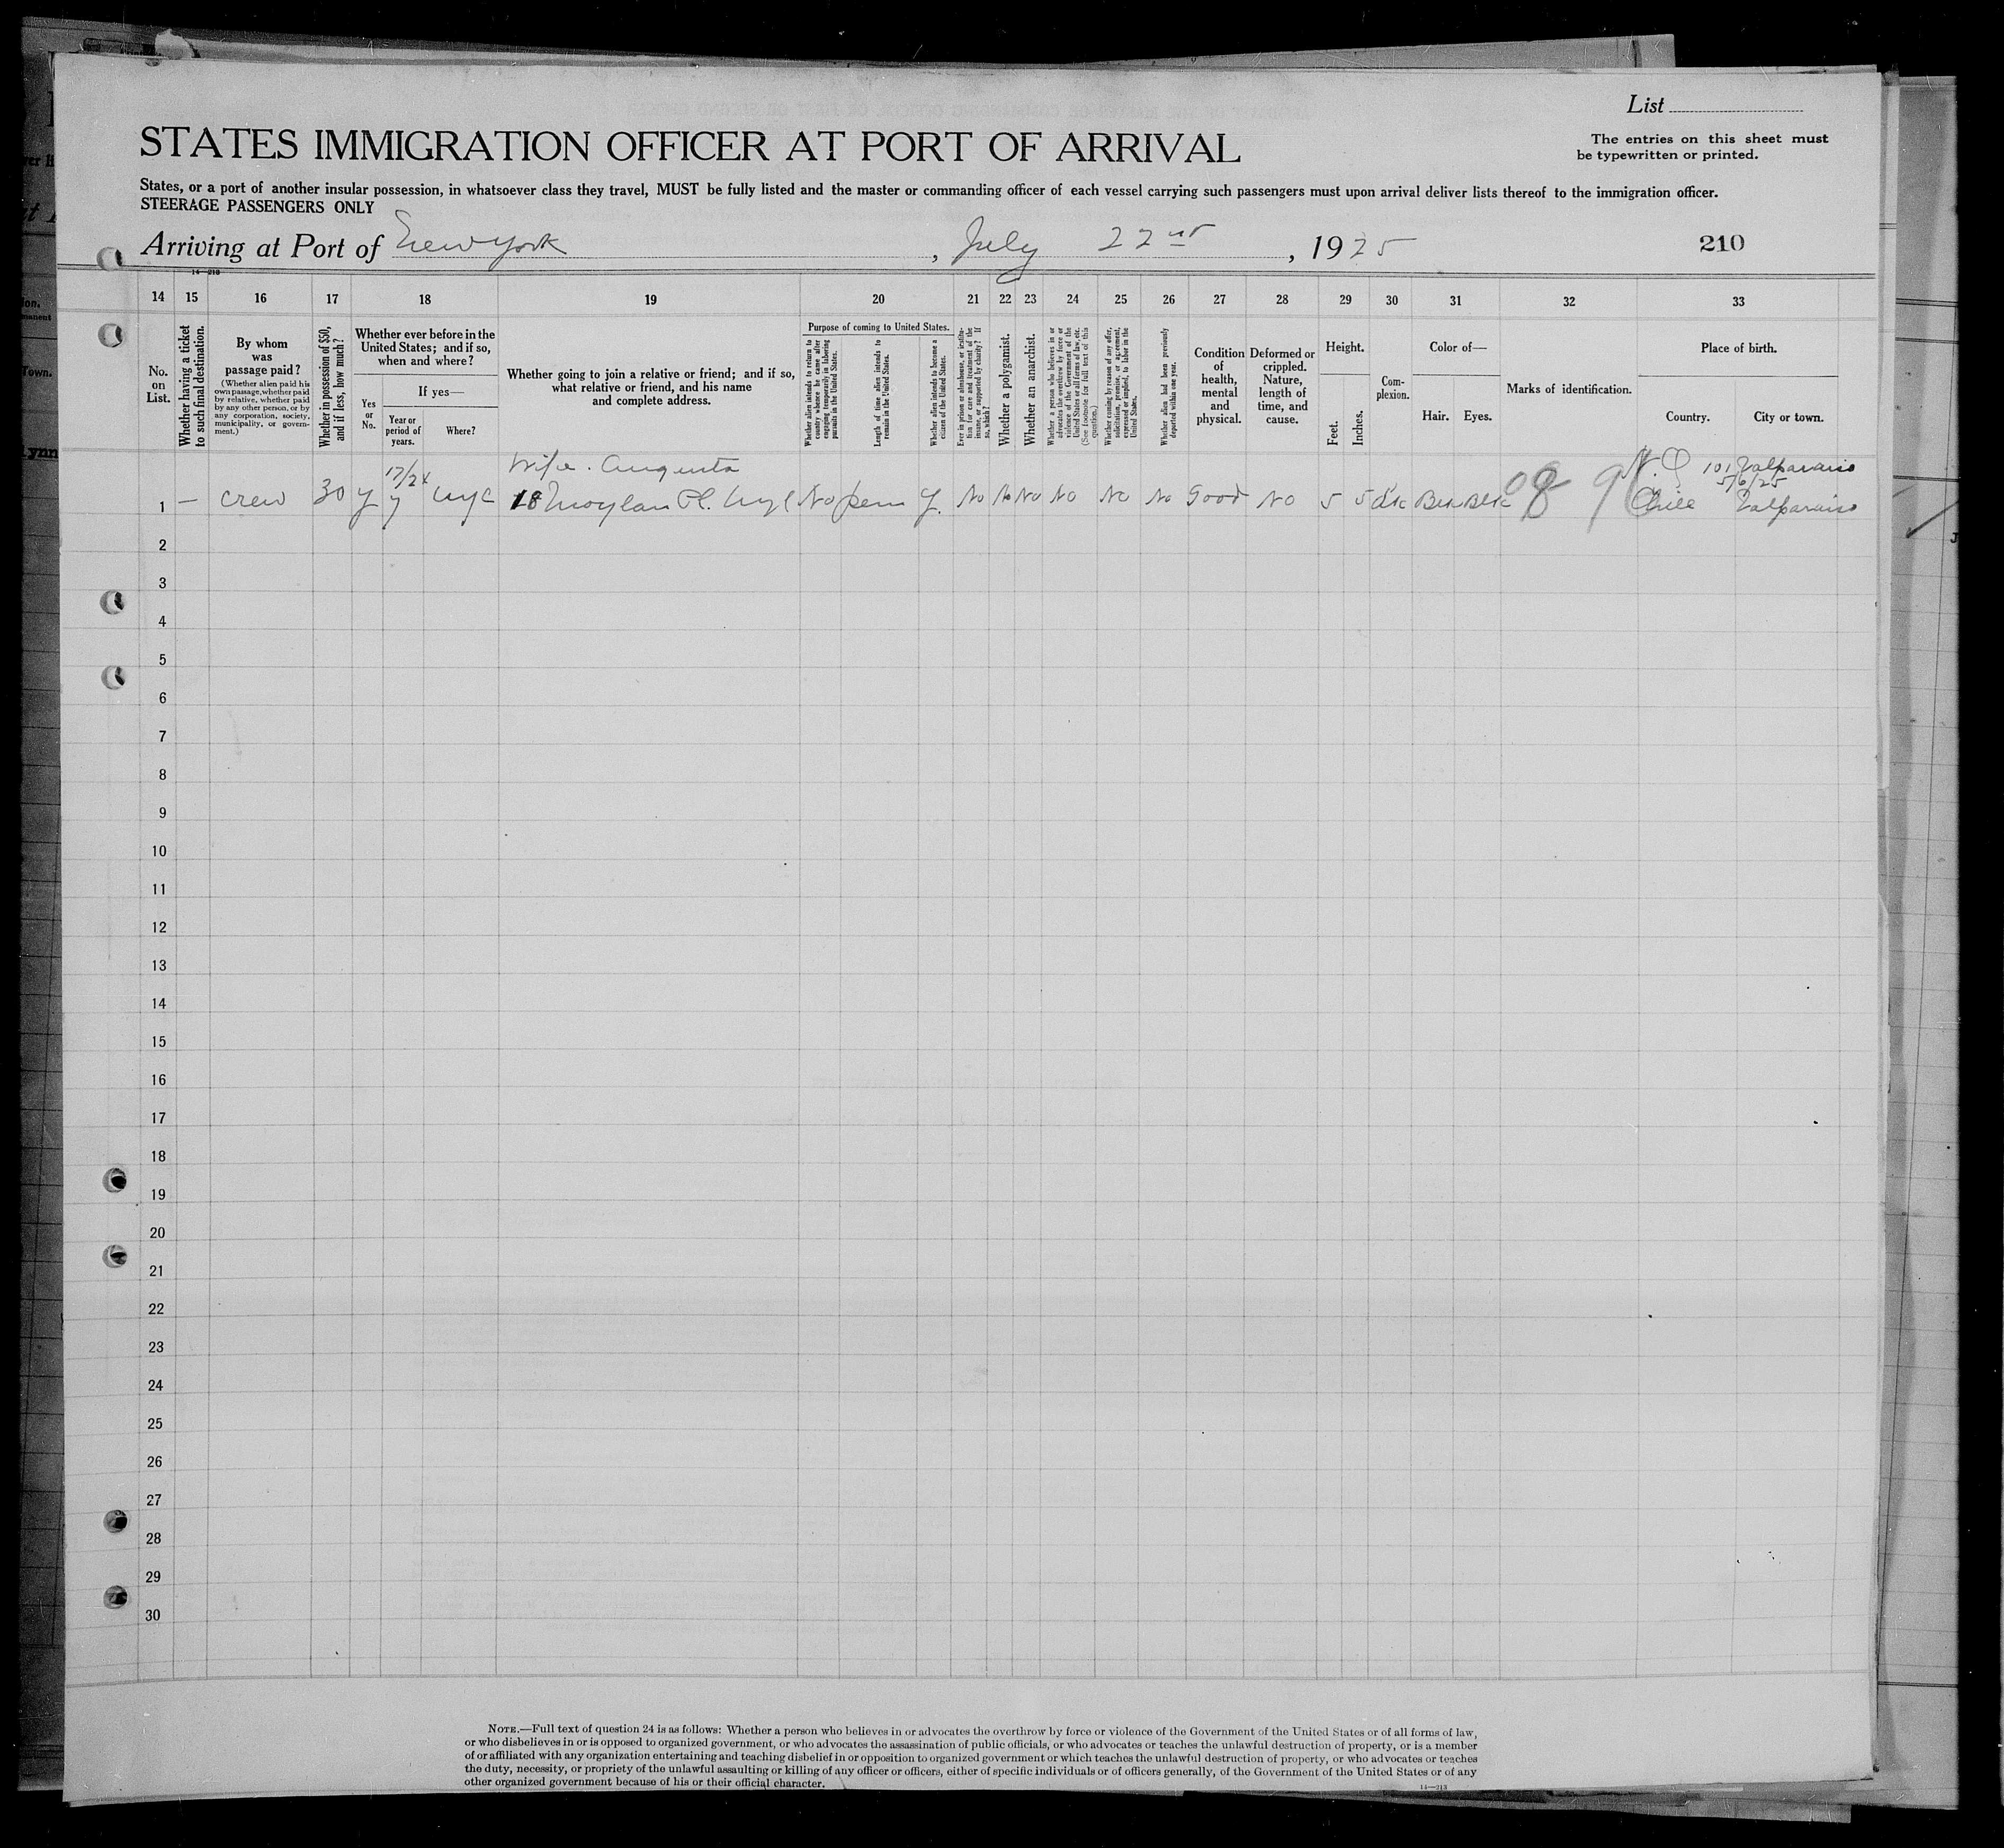 List
The entries on this sheet must
be typewritten or printed.
STATES IMMIGRATION OFFICER AT PORT OF ARRIVAL
States, or a port of another insular possession, in whatsoever class they travel, MUST be fully listed and the master or commanding officer of each vessel carrying such passengers must upon arrival deliver lists thereof to the immigration officer.
STEERAGE PASSENGERS ONLY
Arriving at Port of New York, July 22nd, 1925
210
14—210
14 15 16 17 18 19 20 21 22 23 24 25 26 27 28 29 30 31 32 33
No.
on
List.
Whether having a ticket
to such final destination.
By whom
was
passage paid?
(Whether alien paid his
own passage, whether paid
by relative, whether paid
by any other person, or by
any corporation, society,
municipality, or govern-
ment.)
Whether in possession of $50,
and if less, how much?
Whether ever before in the
United States; and if so,
when and where?
Yes
or
No.
If yes—
Year or
period of
years.
Where?
Whether going to join a relative or friend; and if so,
what relative or friend, and his name
and complete address.
Purpose of coming to United States.
Whether alien intends to return to
country whence he came after
engaging temporarily in laboring
pursuits in the United States.
Length of time alien intends to
remain in the United States.
Whether alien intends to become a
citizen of the United States.
Ever in prison or almshouse, or institu-
tion for care and treatment of the
insane, or supported by charity? If
so, which?
Whether a polygamist.
Whether an anarchist.
Whether a person who believes in or
advocates the overthrow by force or
violence of the Government of the
United States or all forms of law, etc.
(See footnote for full text of this
question.)
Whether coming by reason of any offer,
solicitation, promise, or agreement,
expressed or implied, to labor in the
United States.
Whether alien had been previously
deported within one year.
Condition
of
health,
mental
and
physical.
Deformed or
crippled.
Nature,
length of
time, and
cause.
Height.
Feet.
Inches.
Com-
plexion.
Color of—
Hair. Eyes.
Marks of identification.
Place of birth.
Country. City or town.
17/24 Wife. Augusta N.Q 101 Valparaiso
5/6/25
1 — crew 30 y y nyc 18 Moylan Pl. nyc No perm y. No No No No No No Good No 5 5 dk Blk Blk Chile Valparaiso
2
3
4
5
6
7
8
9
10
11
12
13
14
15
16
17
18
19
20
21
22
23
24
25
26
27
28
29
30
NOTE.—Full text of question 24 is as follows: Whether a person who believes in or advocates the overthrow by force or violence of the Government of the United States or of all forms of law,
or who disbelieves in or is opposed to organized government, or who advocates the assassination of public officials, or who advocates or teaches the unlawful destruction of property, or is a member
of or affiliated with any organization entertaining and teaching disbelief in or opposition to organized government or which teaches the unlawful destruction of property, or who advocates or teaches
the duty, necessity, or propriety of the unlawful assaulting or killing of any officer or officers, either of specific individuals or of officers generally, of the Government of the United States or of any
other organized government because of his or their official character.
14—213